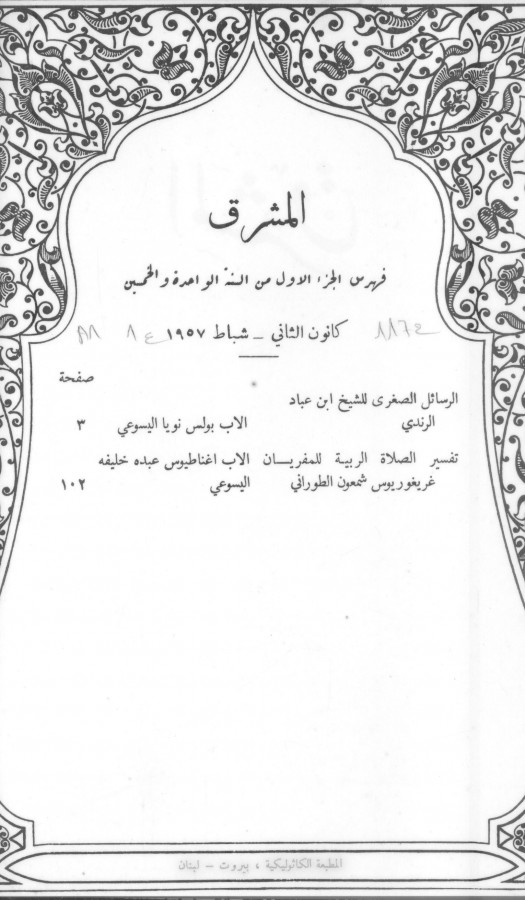 المشرق
فهرس الجزء الاول من السنة الواحدة والخمسين
كانون الثاني – شباط ١٩٥٧
صفحة
الرسائل الصغرى للشيخ ابن عباد
الرندي الاب بولس نويا اليسوعي ٣
تفسير الصلاة الربية للمفريان الاب اغناطيوس عبده خليفه
غريغوريوس شمعون الطوراني اليسوعي ١٠٢
المطبعة الكاثوليكية ، بيروت – لبنان